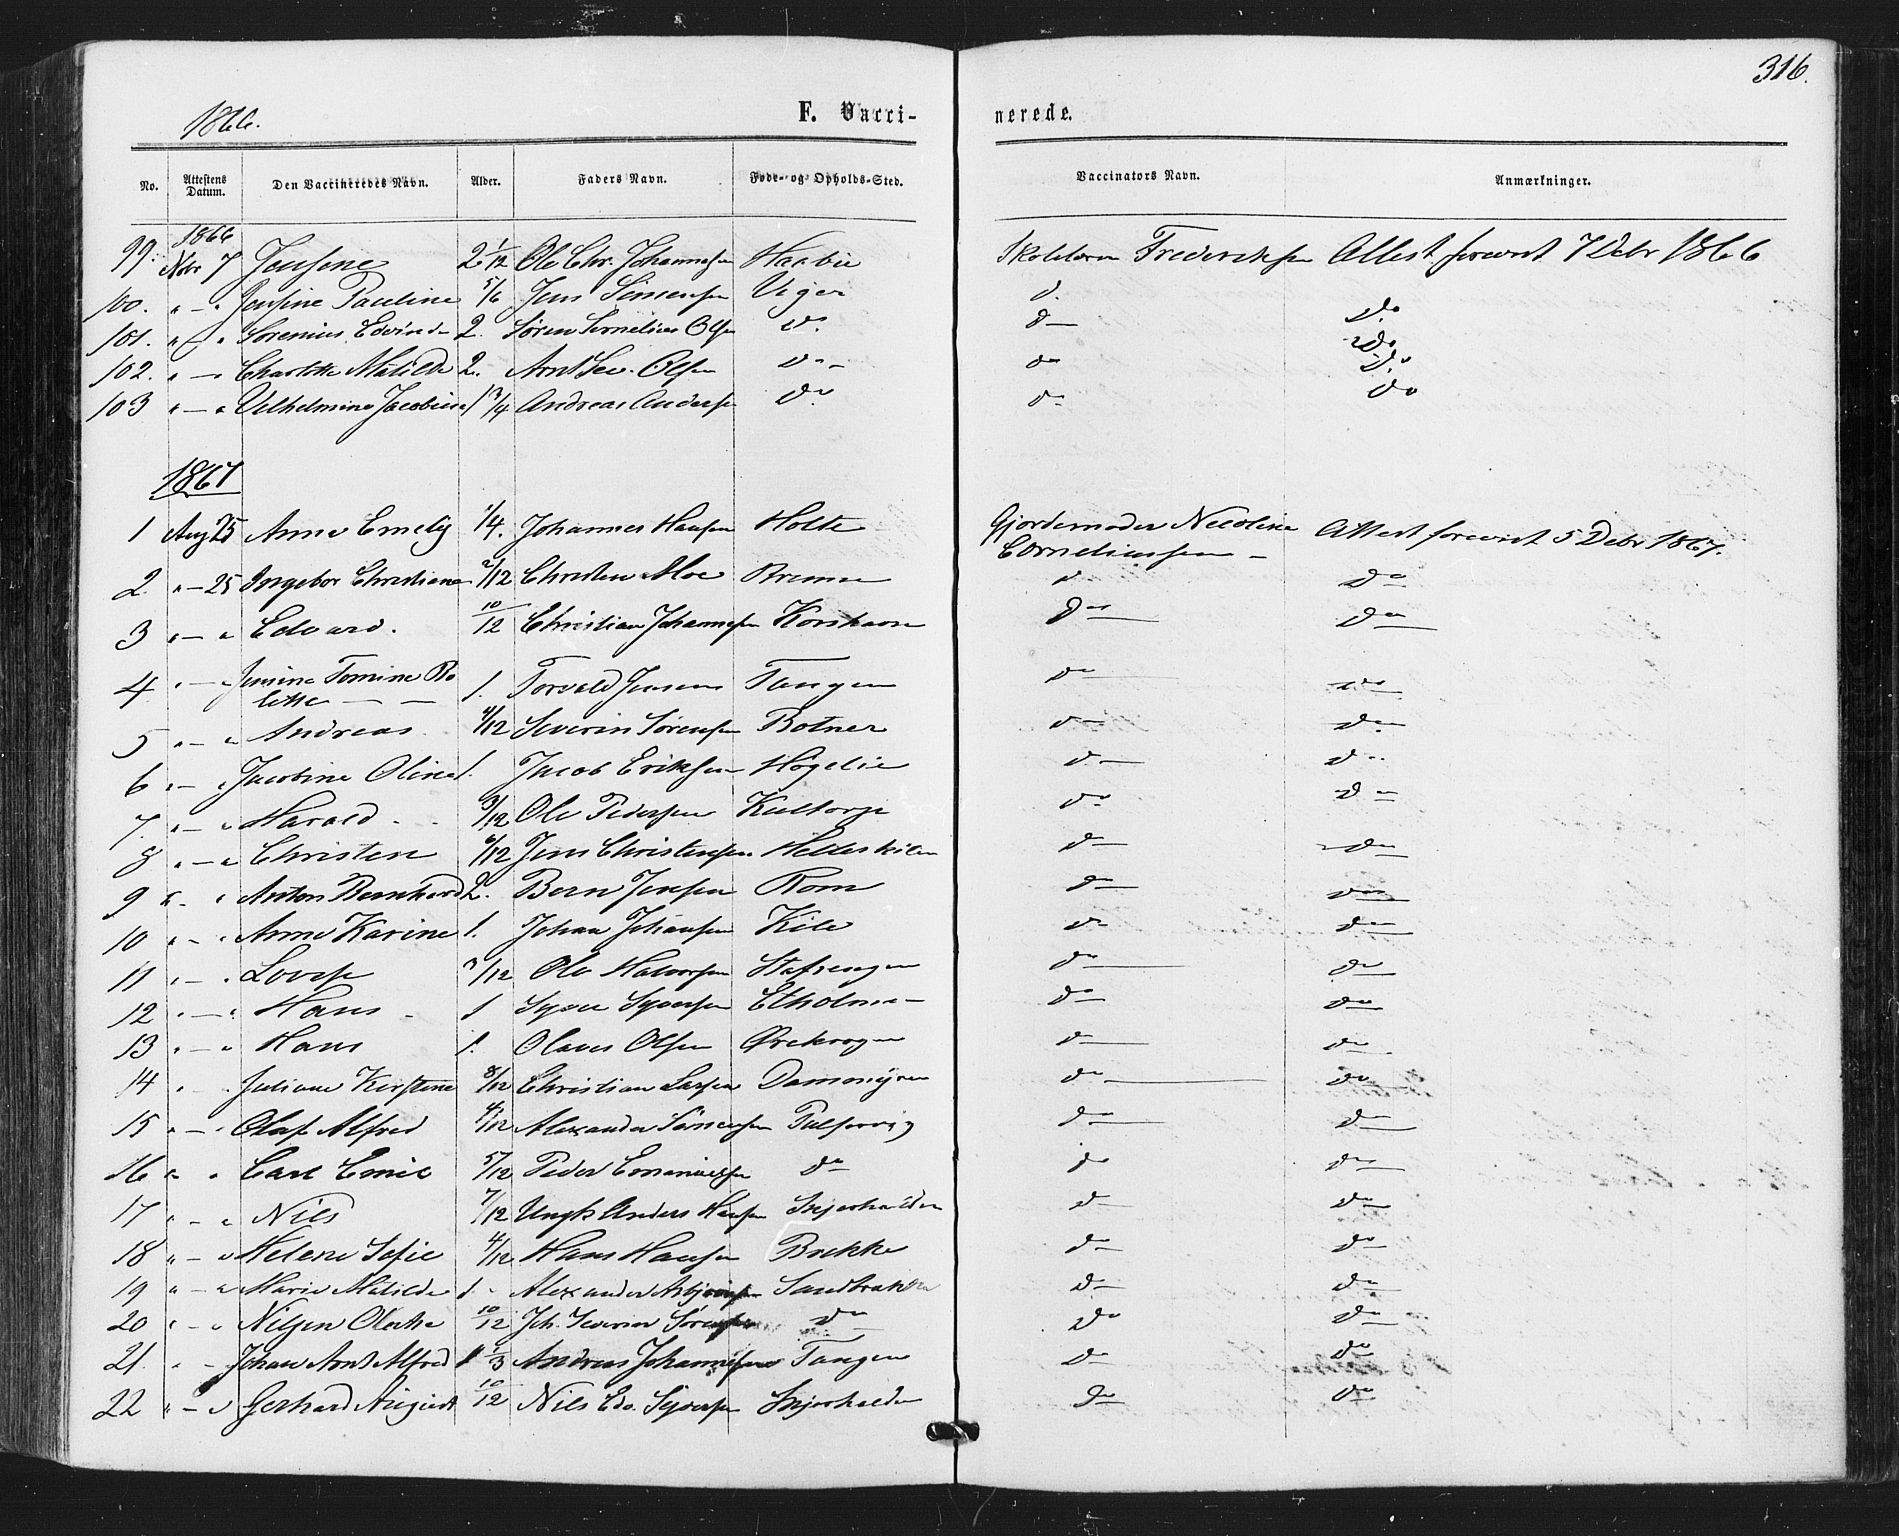 316.
1866. F. Vacci- nerede.
No. Attestens Datum. Den Vaccineredes Navn. Alder. Faders Navn. Føde- og Opholds-Sted. Vaccinators Navn. Anmærkninger.
1866
99. Nvbr 7 Jensine 2 1/12 Ole Chr. Johannesen Haabie Skolelærer Frederiksen Attest forevist 7 Debr 1866
100. " - " Jensine Pauline 5/6 Jens Simensen Viger d.
101. " " Sorenius Edvind 2. Søren Cornelius Olsen do. do do
102. " - " Charlotte Matilde 2. Arnt Sev. Olsen do - do do
103 " - " Vilhelmine Jacobine 1 3/4 Andreas Andersen do. do do
1867
1 Aug 25 Anne Emelij 1/4. Johannes Hansen Holte Gjordemoder Nicoline Attest forevist 5 Debr 1867.
Corneliussen -
2. " - 25 Ingebor Christiane 2/12 Christen Moe do
3 " - " Edvard. 10/12 Christian Johannesen Korshavn do do
4 " - " Jensine Tomine Bo 1. Torvald Jensen Tangen do do
lette - -
5 " - " Andreas 4/12 Severin Sørensen Botner do do
6 " - " Jacobine Oline 1. Jacob Eriksen Høgelie do do
7. " - " Harald - - 3/12 Ole Pedersen do do
8 " - " Christen 6/12 Jens Christensen do do
9 " - " Anton Bernhard 2. Bern Jensen Rom do do
10 " - " Anne Karine 1. Johan Johansen Kile do do
11 " - " Lovise /12 Ole Halvorsen Stafsengen do do
12 " - " Hans - 1 Syver Syversen Etholme - do do
13 " - " Hans 1. Olaves Olsen Ørekrogen do do
14 " " Juliane Kirstine 8/12 Christian Larsen Dammyren do do
15 " - " Olaf Alfred 4/12 Alexander Sørensen do do
16 " " Carl Emil 5/12 Peder Emanuelsen do do do
17 " - " Nils 7/12 Ungk Anders Hansen do do
18 " - " Helene Sofie 4/12 Hans Hansen Brekke do do
19 " - " Marie Matilde 1 - Alexander Asbjørnsen Sandbrakka do do
20 " - " Nilsen 10/12 Joh. Severin Sørensen do do do
21. " - Johan Arnt Alfred 1 1/3 Andreas Johannesen Tangen do do
22 " - " Gerhard August 10/12 Nils Edv. Syversen do do